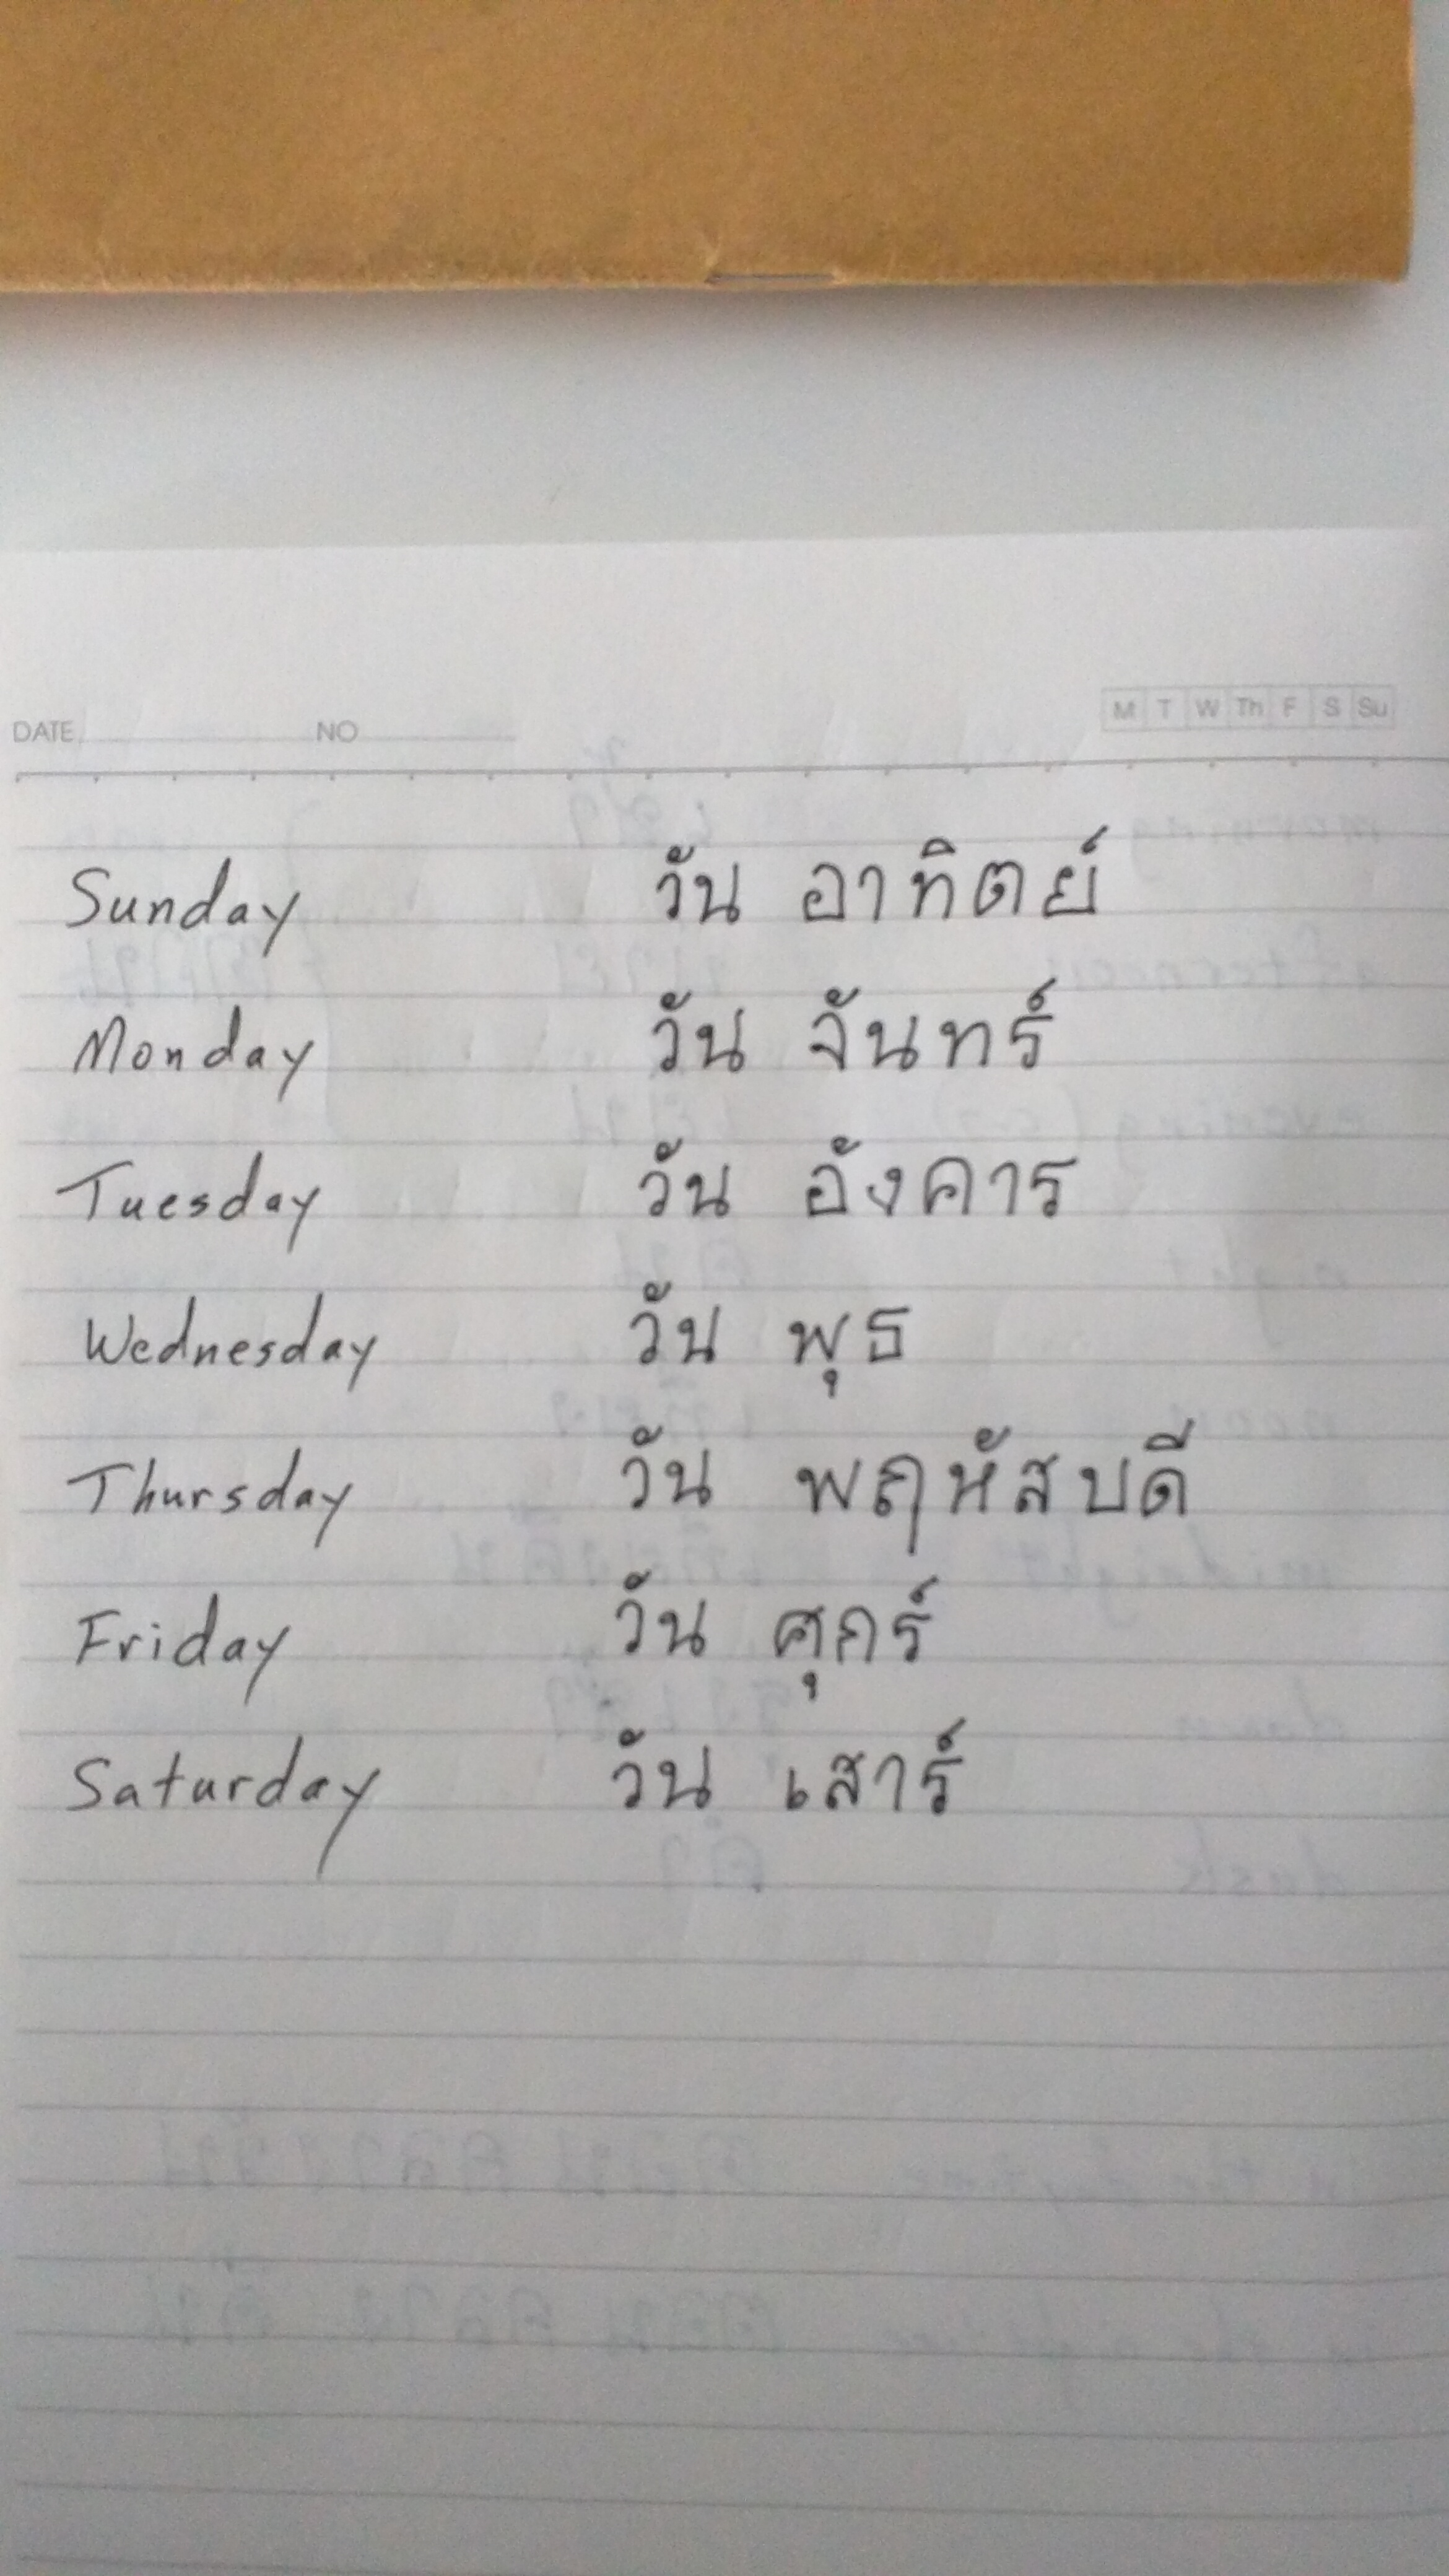 DATE NO M T W Th F S Su
Sunday วัน อาทิตย์
Monday วัน จันทร์
Tuesday วัน อังคาร
Wednesday วัน พุธ
Thursday วัน พฤหัสบดี
Friday วัน ศุกร์
Saturday วัน เสาร์